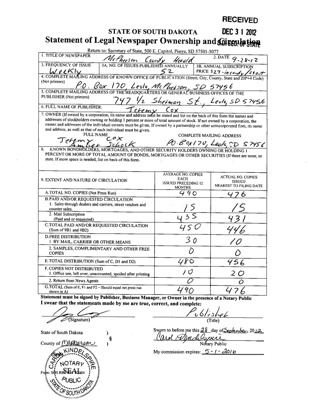 RECEIVED
DEC 31 2012
STATE OF SOUTH DAKOTA
Statement of Legal Newspaper Ownership and Circulation
Return to: Secretary of State, 500 E. Capitol, Pierre, SD 57501-5077
1. TITLE OF NEWSPAPER McPherson County Herald
2. DATE 9-28-12
3. FREQUENCY OF ISSUE Weekly
3A. NO. OF ISSUES PUBLISHED ANNUALLY 52
3B. ANNUAL SUBSCRIPTION PRICE
4. COMPLETE MAILING ADDRESS OF KNOWN OFFICE OF PUBLICATION (Street, City, County, State and ZIP+4 Code) (Not printers)
P.O. Box 170, Leola, McPherson, SD 57456
5. COMPLETE MAILING ADDRESS OF THE HEADQUARTERS OR GENERAL BUSINESS OFFICES OF THE PUBLISHER (Not printers)
747 ½ Sherman St, Leola, SD 57456
6. FULL NAME OF PUBLISHER: Jeremy Cox
7. OWNER (If owned by a corporation, its name and address must be stated and list on the back of this form the names and
addresses of stockholders owning or holding 1 percent or more of total amount of stock. If not owned by a corporation, the
names and addresses of the individual owners must be given. If owned by a partnership or other unincorporated firm, its name
and address, as well as that of each individual must be given.
FULL NAME COMPLETE MAILING ADDRESS
Jeremy Cox PO Box 170, Leola SD 57456
8. KNOWN BONDHOLDERS, MORTGAGES, AND OTHER SECURITY HOLDERS OWNING OR HOLDING 1
PERCENT OR MORE OF TOTAL AMOUNT OF BONDS, MORTGAGES OR OTHER SECURITIES (If there are none, so
state. If more space is needed, list on back of this form.
9. EXTENT AND NATURE OF CIRCULATION
AVERAGE NO. COPIES EACH ISSUED PRECEDING 12 MONTHS
ACTUAL NO. COPIES ISSUED NEAREST TO FILING DATE
A. TOTAL NO. COPIES (Net Press Run) 490 476
B. PAID AND/OR REQUESTED CIRCULATION
1. Sales through dealers and carriers, street vendors and counter sales. 15 15
2. Mail Subscription (Paid and or requested) 435 431
C. TOTAL PAID AND/OR REQUESTED CIRCULATION (Sum of 9B1 and 9B2) 450 446
D. FREE DISTRIBUTION
1. BY MAIL, CARRIER OR OTHER MEANS 30 10
2. SAMPLES, COMPLIMENTARY AND OTHER FREE COPIES 0 0
E. TOTAL DISTRIBUTION (Sum of C, D1 and D2) 480 456
F. COPIES NOT DISTRIBUTED
1. Office use, left over, unaccounted, spoiled after printing 10 20
2. Return from News Agents 0 0
G. TOTAL (Sum of E, F1 and F2 - Should equal net press run shown in A) 490 476
Statement must be signed by Publisher, Business Manager, or Owner in the presence of a Notary Public
I swear that the statements made by me are true, correct, and complete:
(Signature)
Publisher
(Title)
State of South Dakota )
§
County of McPherson )
Sworn to before me this 28 day of September, 2012.
Notary Public
My commission expires:
NOTARY
SEAL
PUBLIC
SOUTH DAKOTA